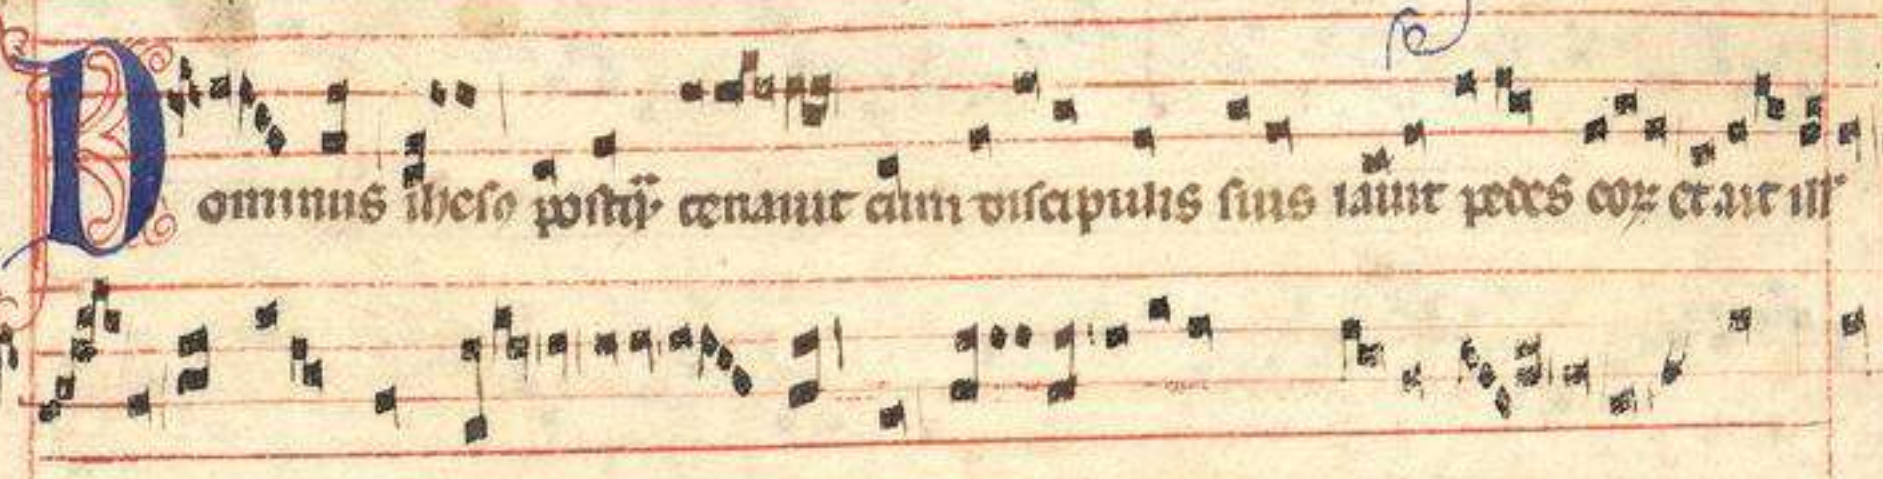 Dominus ihesꝰ postq̄ᷓ cenauit cum discipulis suis lauit pedes eoꝝ et ait illꝭ